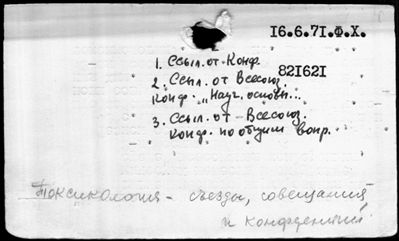 16.6.71.Ф.Х.
1. Ссыл. от Конф.
821621
2. Ссыл. от Всесоюз.
Конф. "Науч. основы...
3. Ссыл. от Всесоюз.
Конф. по общим вопр.
Токсикология - съезды, совещания
и конференции